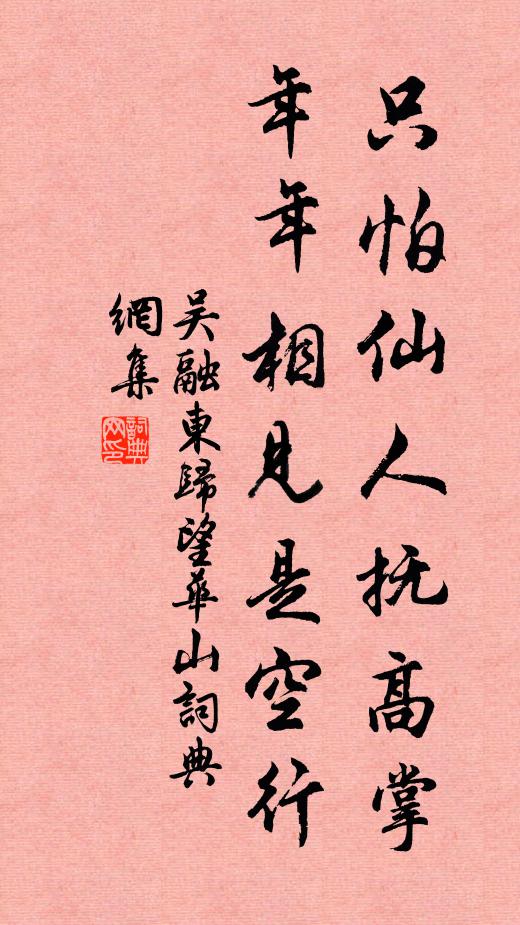 只怕仙人抚高掌
年年相見是空行
吴融東歸望華山詞典
網集
詞典網印